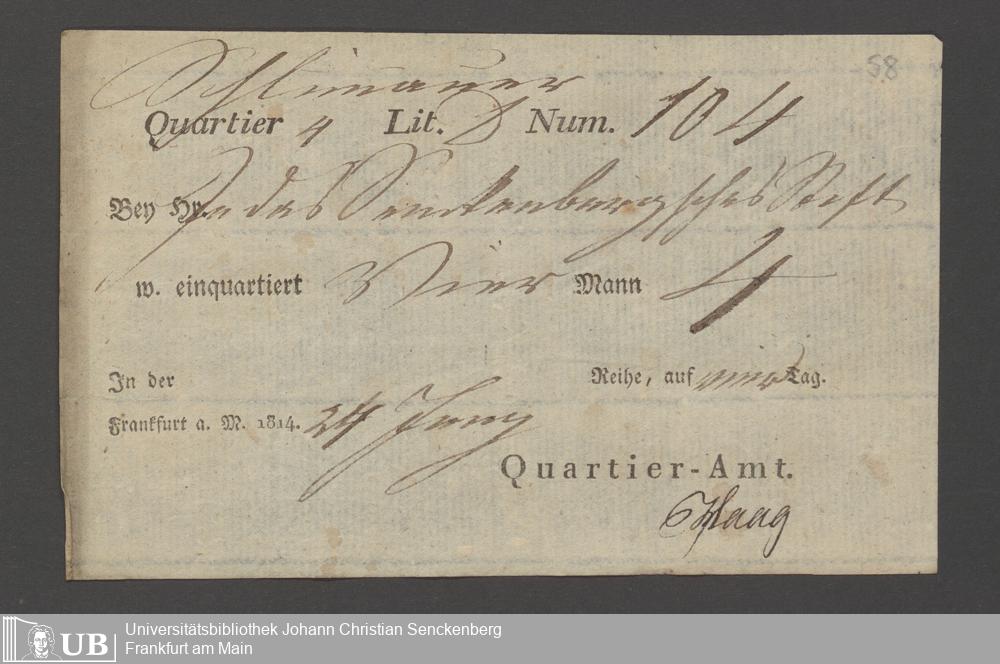 58
Quartier 4 Lit. D Num. 104
Bey Hr. In das Senckenbergsches Stift
w. einquartiert Vier Mann 4
In der Reihe, auf vier Tag.
Frankfurt a. M. 1814. 24 Juny
Quartier-Amt.
Haag
UB
Universitätsbibliothek Johann Christian Senckenberg
Frankfurt am Main